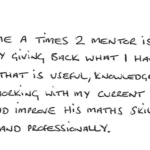 ME A TIMES 2 MENTOR IS
Y GIVING BACK WHAT I HA
THAT IS USEFUL, KNOWLEDG
WORKING WITH MY CURRENT
D IMPROVE HIS MATHS SKIL
AND PROFESSIONALLY.